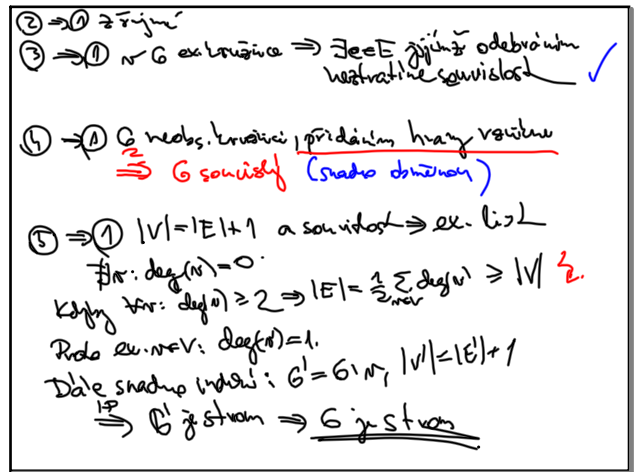 ② → ① zřejmé
③ → ① v G ex. kružnice ⇒ ∃e∈E jejímž odebráním
neztratíme souvislost ✓
④ → ① G neobs. kružnici, přidáním hrany vznikne
⇒ G souvislý (snadno obměnou)
⑤ ⇒ ① |V|=|E|+1 a souvislost ⇒ ex. list
∄v: deg(v)=0.
Kdyby ∀v: deg(v) ≥ 2 ⇒ |E| = 1/2 ∑ v∈V deg(v) ≥ |V|
Proto ex. v∈V: deg(v)=1.
Dále snadno indukcí: G' = G \ v, |V'|=|E'|+1
IP ⇒ G' je strom ⇒ G je strom